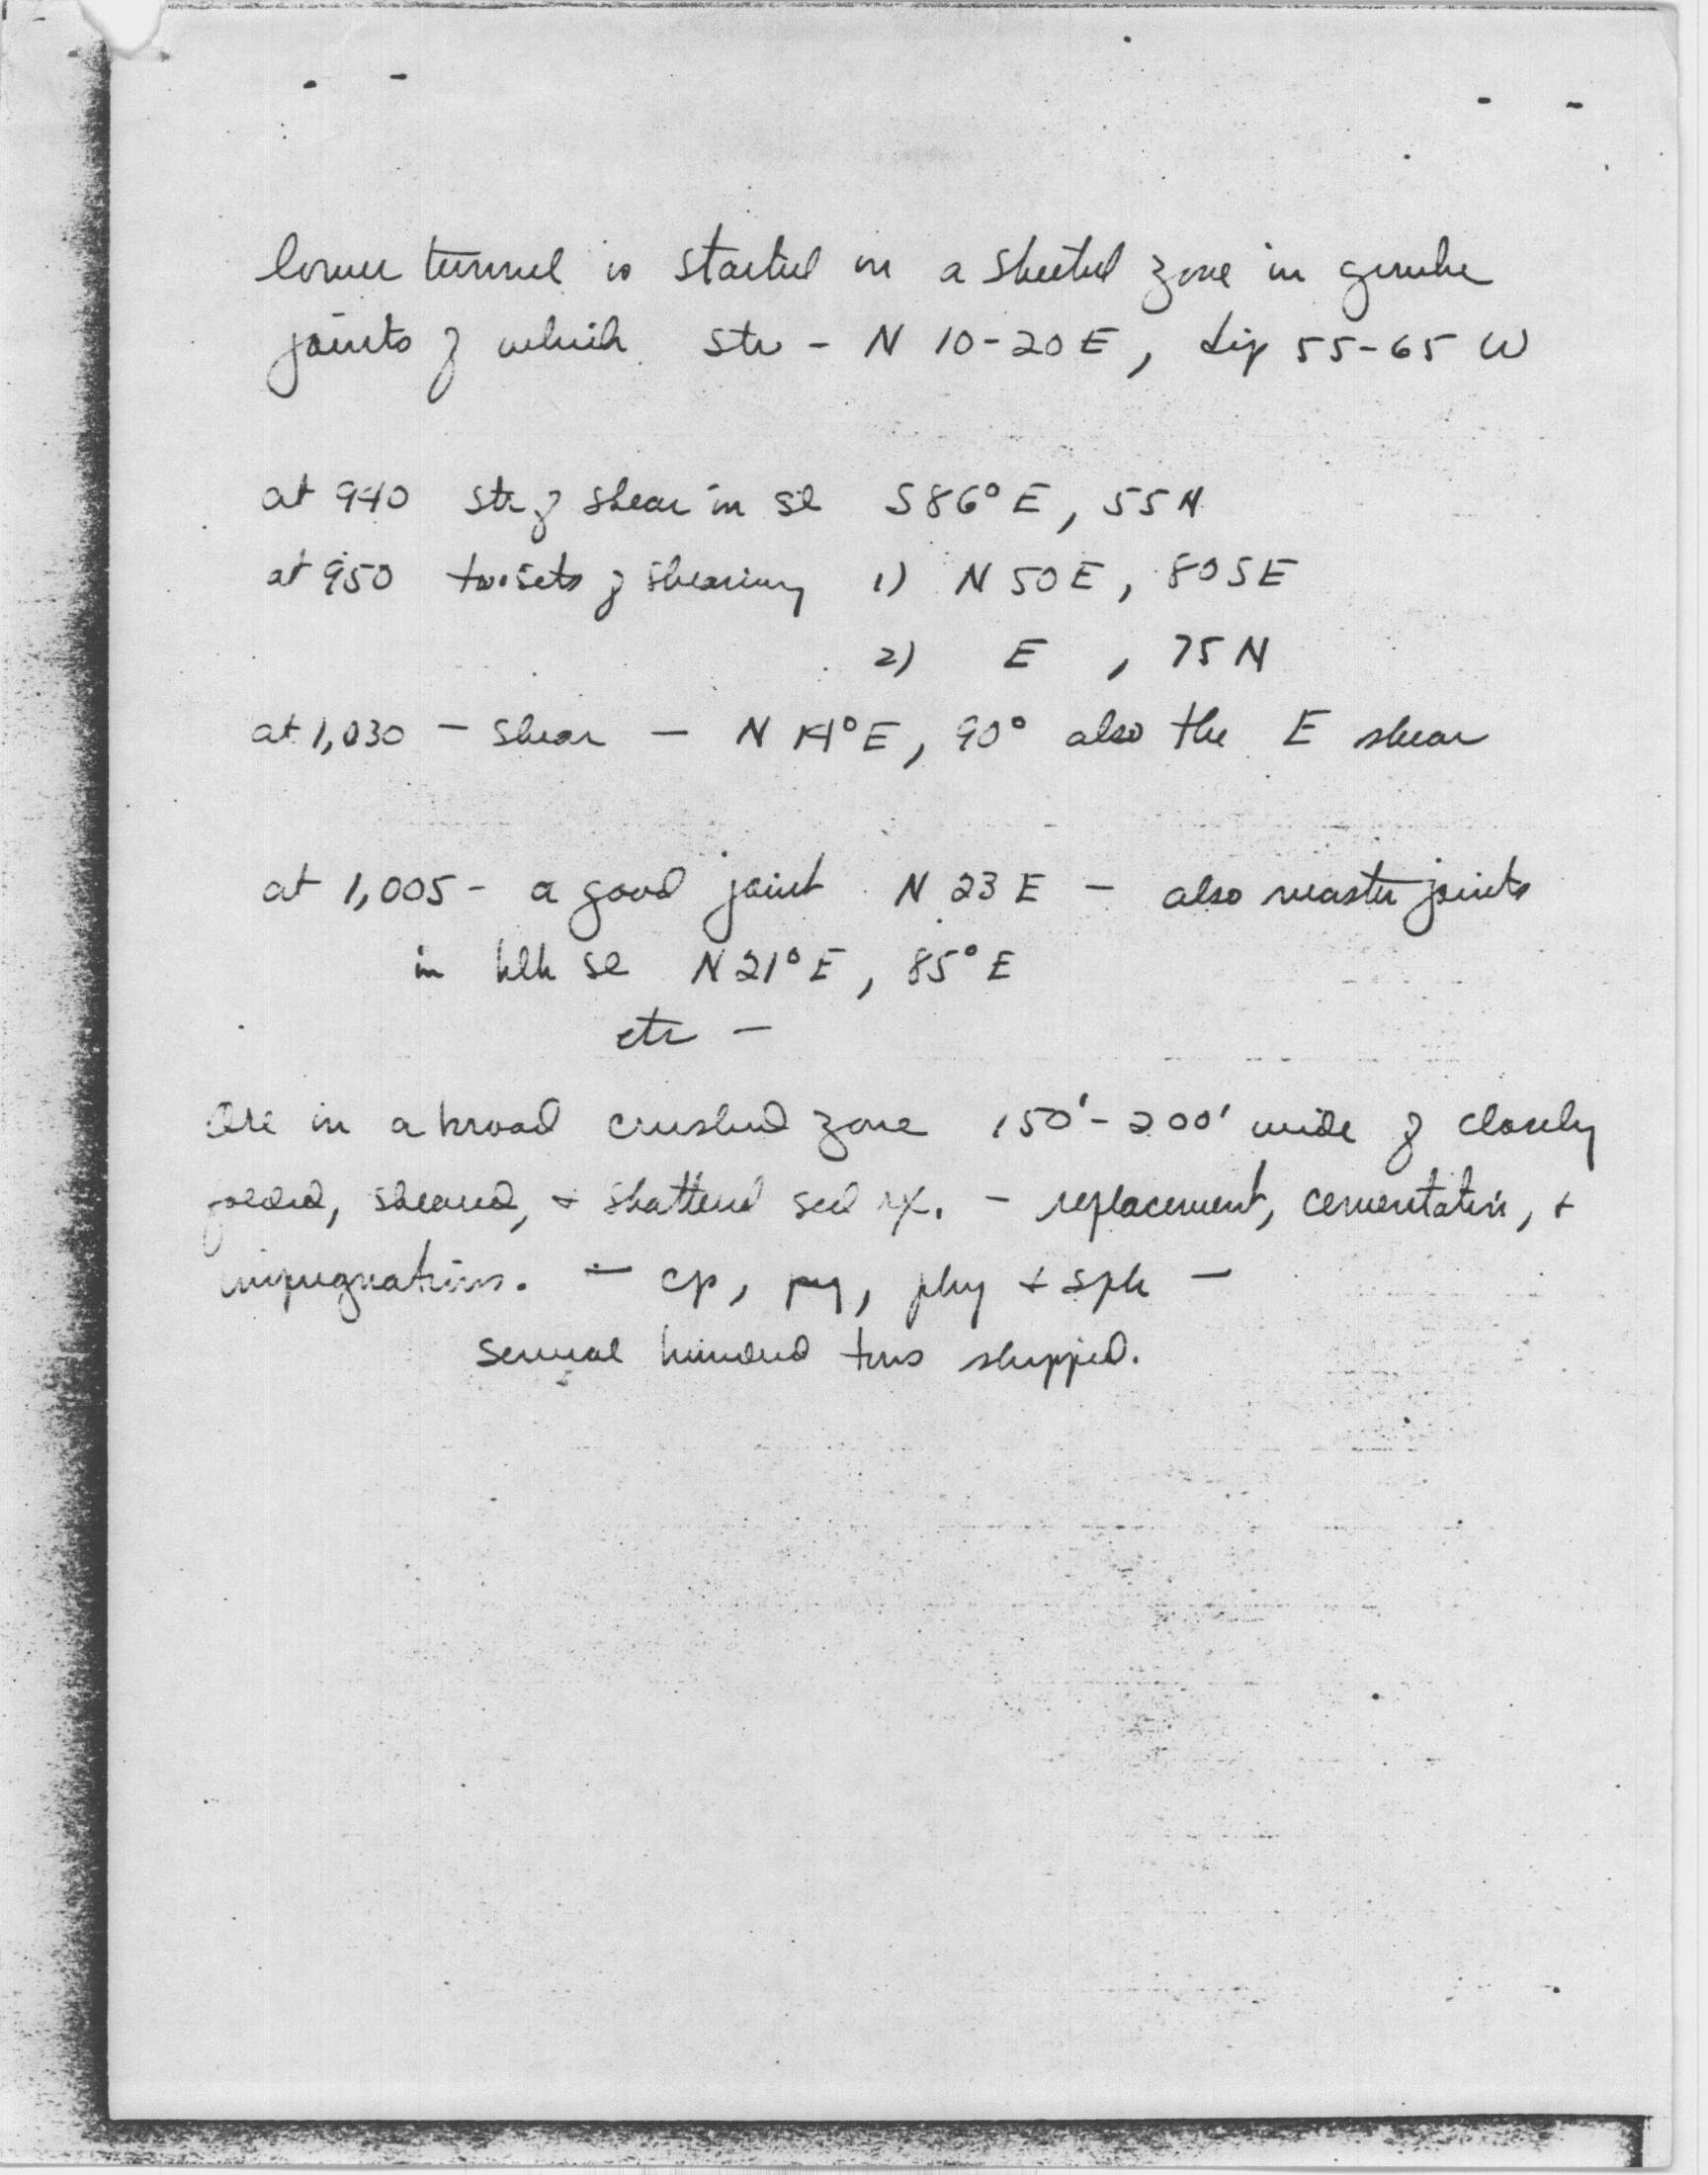 lower tunnel is started in a sheeted zone in
joints of which str - N 10-20 E, dip 55-65 W
at 940 str of shear in sl S86°E, 55N
at 950 two sets of shearing 1) N 50 E, 80SE
2) E , 75N
at 1,030 - shear - N 14°E, 90° also the E shear
at 1,005 - a good joint N 23 E - also master joints
in blk sl N21°E, 85°E
etc -
Ore in a broad crushed zone 150'-200' wide of closely
folded, sheared, + shattered sed rx. - replacement, cementation, +
impregnations. - cp, py, phy + sph -
several hundred tons shipped.